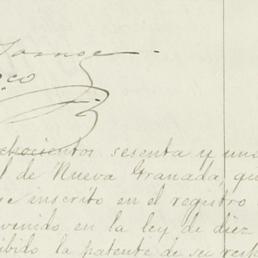 ochocientos sesenta y uno
l de Nueva Granada, qu
e inscrito en el registro
venido en la ley de diez
ibido la patente de su resp